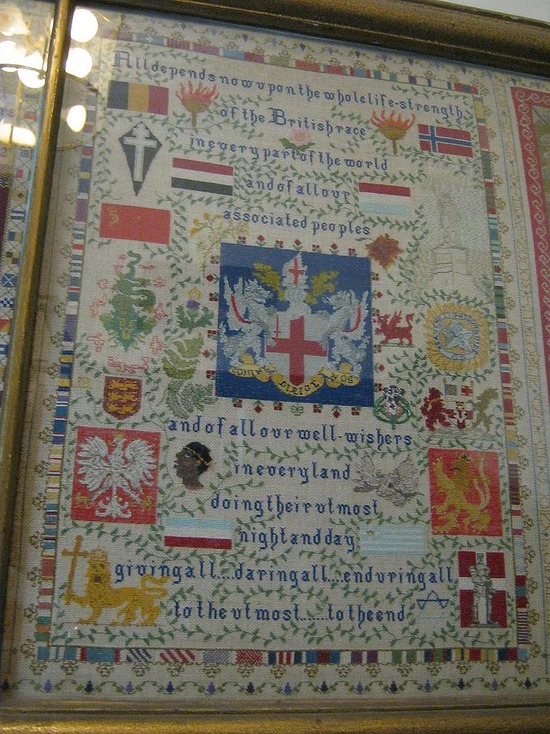 All depends now upon the whole life-strength
of the British race
in every part of the world
and of all our
associated peoples
DOMINE DIRIGE NOS
and of all our well-wishers
in every land
doing their utmost
night and day
giving all...daring all...enduring all
to the utmost......to the end